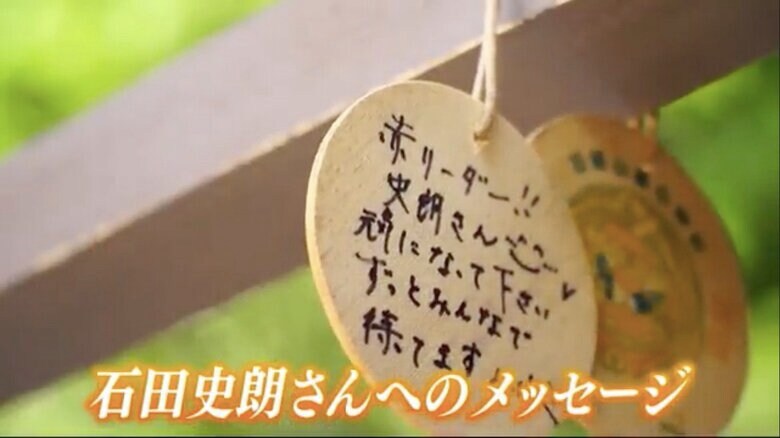 赤リーダー!!
史朗さん
元気になって下さい
ずっとみんなで
待ってます
石田史朗さんへのメッセージ